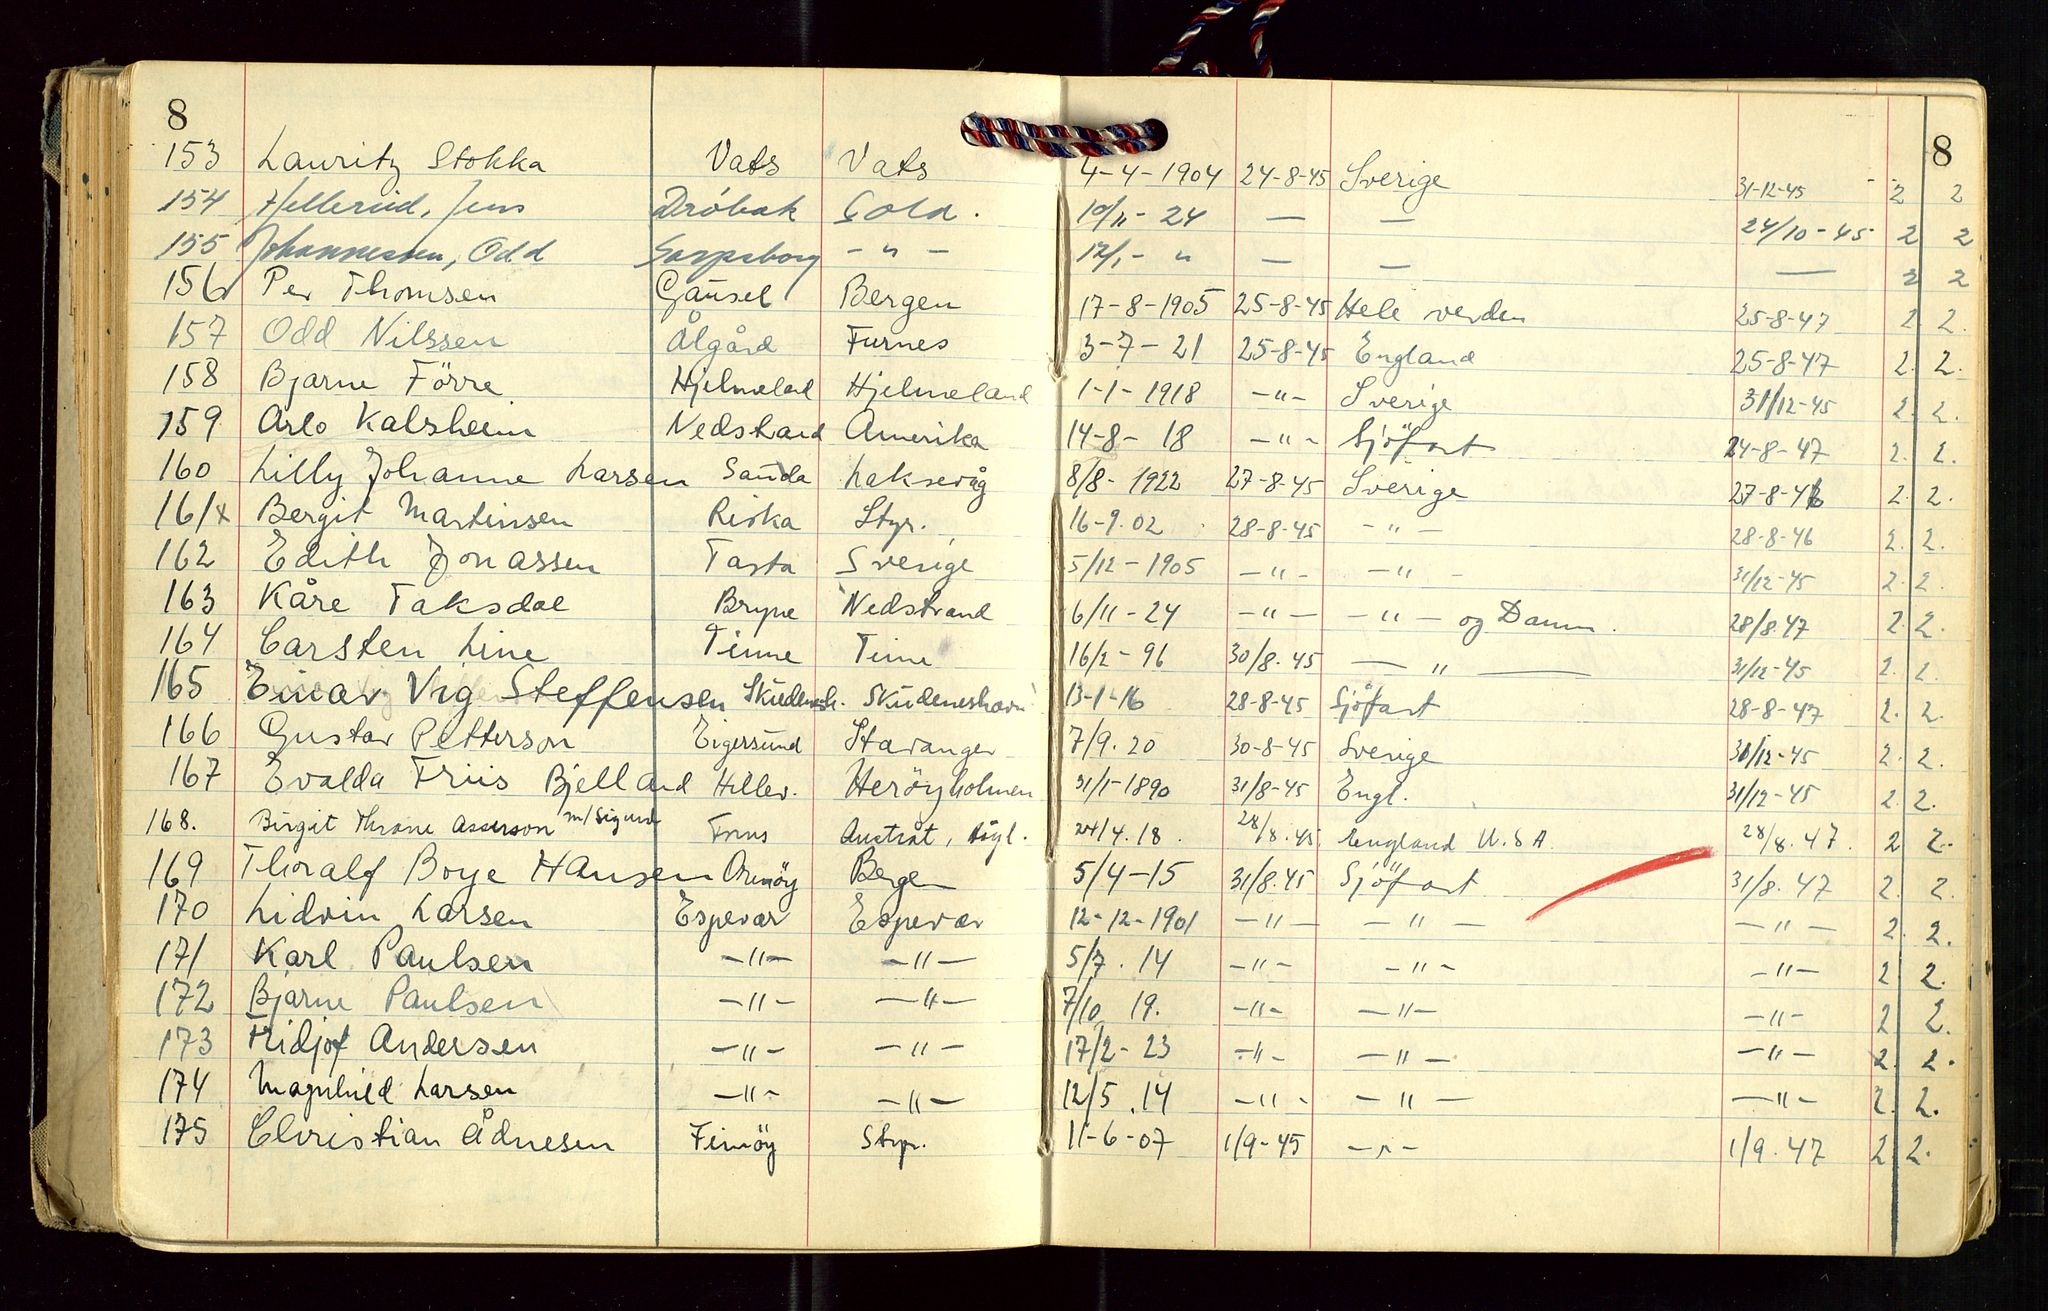 8 8
153 Lauritz Stokka Vats Vats 4-4-1904 24-8-45 Sverige 31-12-45 2 2
154 Hellerud, Jens Dröbak Sold. 10/11-24 — — 24/10-45 2 2
155 Johannessen, Odd Sarpsborg -"- 12/1-" — — — 2 2
156 Per Thomsen Gausel Bergen 17-8-1905 25-8-45 Hele verden 25-8-47 2. 2.
157 Odd Nilssen Ålgård Furnes 3-7-21 25-8-45 England 25-8-47 2. 2.
158 Bjarne Förre Hjelmelad Hjelmeland 1-1-1918 -"- Sverige 31/12-45 2. 2.
159 Arlo Kalsheim Nedstrand Amerika 14-8-18 -"- Sjöfart 24-8-47 2. 2.
160 Lilly Johanne Larsen Sauda Laksevåg 8/8-1922 27-8-45 Sverige 27-8-46 2. 2.
161x Bergit Martinsen Riska Styr. 16-9.02 28-8-45 -"- 28-8-46 2. 2.
162 Edith Jonassen Tasta Sverige 5/12-1905 -"- -"- 31/12-45 2. 2.
163 Kåre Taksdal Bryne Nedstrand 6/11-24 -"- -"- og Danm. 28/8.47 2. 2.
164 Carsten Line Time Time 16/2-96 30/8.45 —"— 31/12-45 2. 2.
165 Einar Vig Steffensen Skudenesh. Skudeneshavn 13-1-16 28-8-45 Sjöfart 28-8-47 2. 2.
166 Gustav Petterson Eigersund Stavanger 7/9.20 30-8-45 Sverige 31/12-45 2. 2.
167 Evalda Friis Bjelland Hillev. Heröyholmen 31/1-1890 31/8-45 Engl. 31/12-45 2. 2.
168. Birgit Thrane Asserson m/Sigurd Fous Austråt, Högl. 24/4.18. 28/8.45 England U.S.A. 28/8.47. 2 2.
169 Thoralf Boye Hansen Ormöy Bergen 5/4-15 31/8.45 Sjöfart 31/8.47 2. 2.
170 Lidvin Larsen Espevær Espevær 12-12-1901 -"- -"- -"- 2. 2.
171 Karl Paulsen -"- -"- 5/7.14 -"- -"- -"- 2 2.
172 Bjarne Paulsen -"- -"- 7/10 19. -"- -"- -"- 2 2.
173 Fridjof Andersen -"- -"- 17/2-23 -"- -"- -"- 2. 2.
174 Magnhild Larsen -"- -"- 12/5.14 -"- -"- -"- 2. 2.
175 Christian Ådnesen Finnöy Styr. 11-6-07 1/9-45 -"- 1/9.47 2. 2.